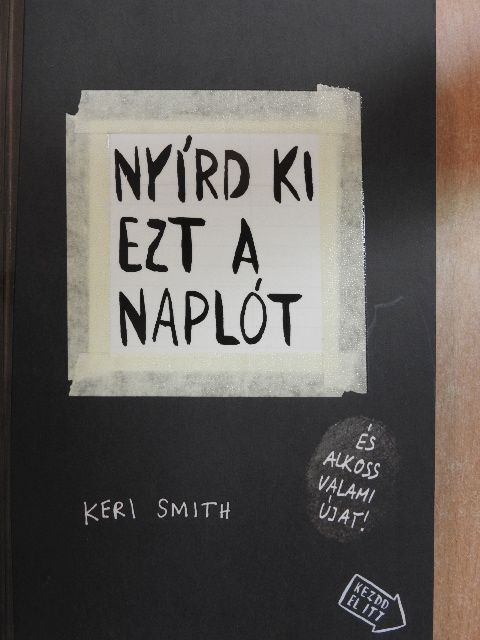 NYÍRD KI
EZT A
NAPLÓT
ÉS
ALKOSS
VALAMI
ÚJAT!
KERI SMITH
KEZDD
EL ITT